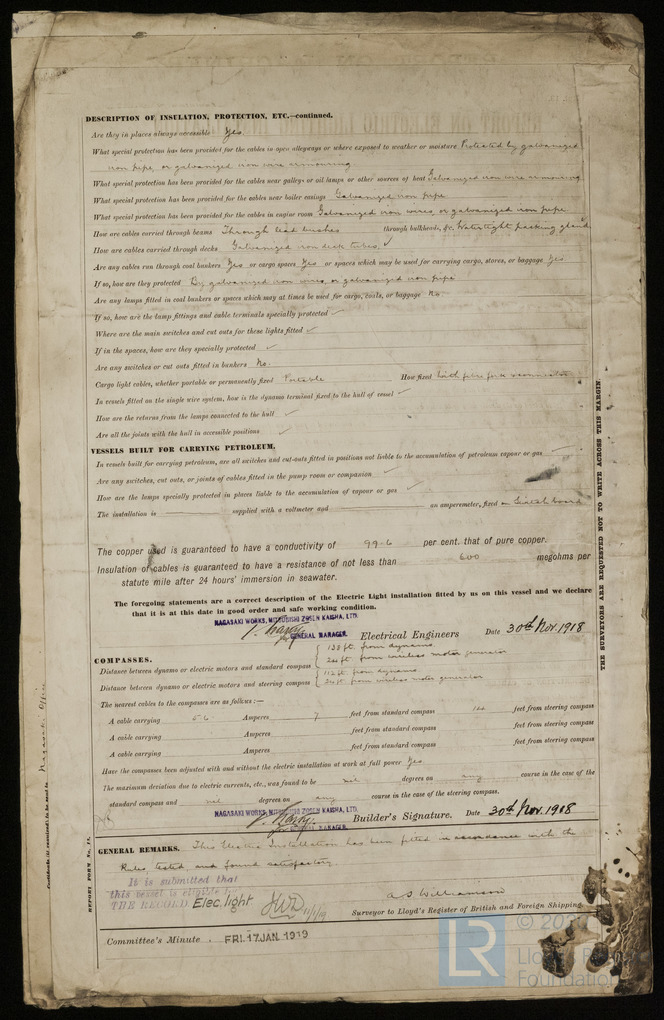 DESCRIPTION OF INSULATION, PROTECTION, ETC.—continued.
Are they in places always accessible Yes
What special protection has been provided for the cables in open alleyways or where exposed to weather or moisture Protected by galvanized
iron pipe or galvanized iron wire armouring
What special protection has been provided for the cables near galleys or oil lamps or other sources of heat Galvanized iron wire armouring
What special protection has been provided for the cables near boiler casings Galvanized iron pipe
What special protection has been provided for the cables in engine room Galvanized iron wires, or galvanized iron pipe
How are cables carried through beams Through lead bushes through bulkheads, &c. Watertight packing gland
How are cables carried through decks Galvanized iron deck tubes ✓
Are any cables run through coal bunkers Yes or cargo spaces Yes or spaces which may be used for carrying cargo, stores, or baggage Yes
If so, how are they protected By galvanized iron wires, or galvanized iron pipe
Are any lamps fitted in coal bunkers or spaces which may at times be used for cargo, coals, or baggage No.
If so, how are the lamp fittings and cable terminals specially protected ✓
Where are the main switches and cut outs for these lights fitted ✓
If in the spaces, how are they specially protected ✓
Are any switches or cut outs fitted in bunkers No.
Cargo light cables, whether portable or permanently fixed Portable How fixed
In vessels fitted on the single wire system, how is the dynamo terminal fixed to the hull of vessel ✓
How are the returns from the lamps connected to the hull ✓
Are all the joints with the hull in accessible positions ✓
VESSELS BUILT FOR CARRYING PETROLEUM.
In vessels built for carrying petroleum, are all switches and cut-outs fitted in positions not liable to the accumulation of petroleum vapour or gas
Are any switches, cut outs, or joints of cables fitted in the pump room or companion ✓
How are the lamps specially protected in places liable to the accumulation of vapour or gas ✓
The installation is supplied with a voltmeter and an amperemeter, fixed on Switch board
The copper used is guaranteed to have a conductivity of 99.6 per cent. that of pure copper.
Insulation of cables is guaranteed to have a resistance of not less than 600 megohms per
statute mile after 24 hours' immersion in seawater.
The foregoing statements are a correct description of the Electric Light installation fitted by us on this vessel and we declare
that it is at this date in good order and safe working condition.
NAGASAKI WORKS, MITSUBISHI ZOSEN KAISHA, LTD.
GENERAL MANAGER. Electrical Engineers Date 30th Nov. 1918
COMPASSES.
Distance between dynamo or electric motors and standard compass ft. from dynamo
ft. from wireless motor generator
Distance between dynamo or electric motors and steering compass 112 ft. from dynamo
ft. from wireless motor generator
The nearest cables to the compasses are as follows:—
A cable carrying 5.6 Amperes 7 feet from standard compass feet from steering compass
A cable carrying Amperes feet from standard compass feet from steering compass
A cable carrying Amperes feet from standard compass feet from steering compass
Have the compasses been adjusted with and without the electric installation at work at full power Yes.
The maximum deviation due to electric currents, etc., was found to be nil degrees on any course in the case of the
standard compass and nil degrees on any course in the case of the steering compass.
NAGASAKI WORKS, MITSUBISHI ZOSEN KAISHA, LTD.
GENERAL MANAGER. Builder's Signature. Date 30th Nov. 1918
GENERAL REMARKS. This Electric Installation has been fitted in accordance with the
Rules, tested, and found satisfactory.
It is submitted that
this vessel is eligible for
THE RECORD Elec. light
A S Williamson
Surveyor to Lloyd's Register of British and Foreign Shipping.
Committee's Minute FRI. 17 JAN. 1919
THE SURVEYORS ARE REQUESTED NOT TO WRITE ACROSS THIS MARGIN.
REPORT FORM No.
Nagasaki Office
LR
Foundation